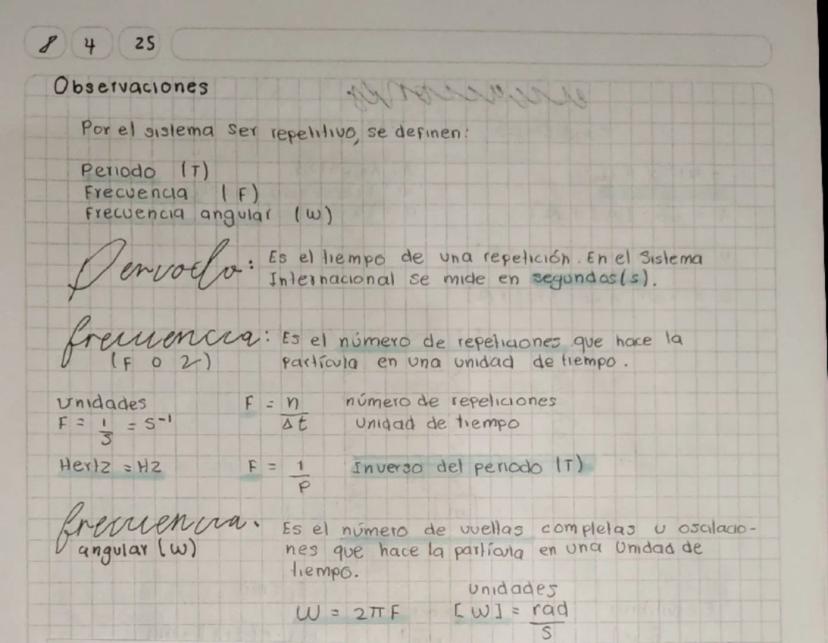 8 4 25
Observaciones
Por el sistema ser repetitivo, se definen:
Periodo (T)
Frecuencia (F)
Frecuencia angular (W)
Periodo: Es el tiempo de una repetición. En el Sistema
Internacional se mide en segundos(s).
frecuencia: Es el número de repeticiones que hace la
(F o 2) partícula en una unidad de tiempo.
Unidades F = n/Δt número de repeticiones
F = 1/S = S⁻¹ Unidad de tiempo
Hertz = HZ F = 1/P Inverso del periodo (T)
frecuencia. Es el número de vuellas completas u oscilacio-
angular (W) nes que hace la partícula en una Unidad de
tiempo.
Unidades
W = 2πF [W] = rad/S